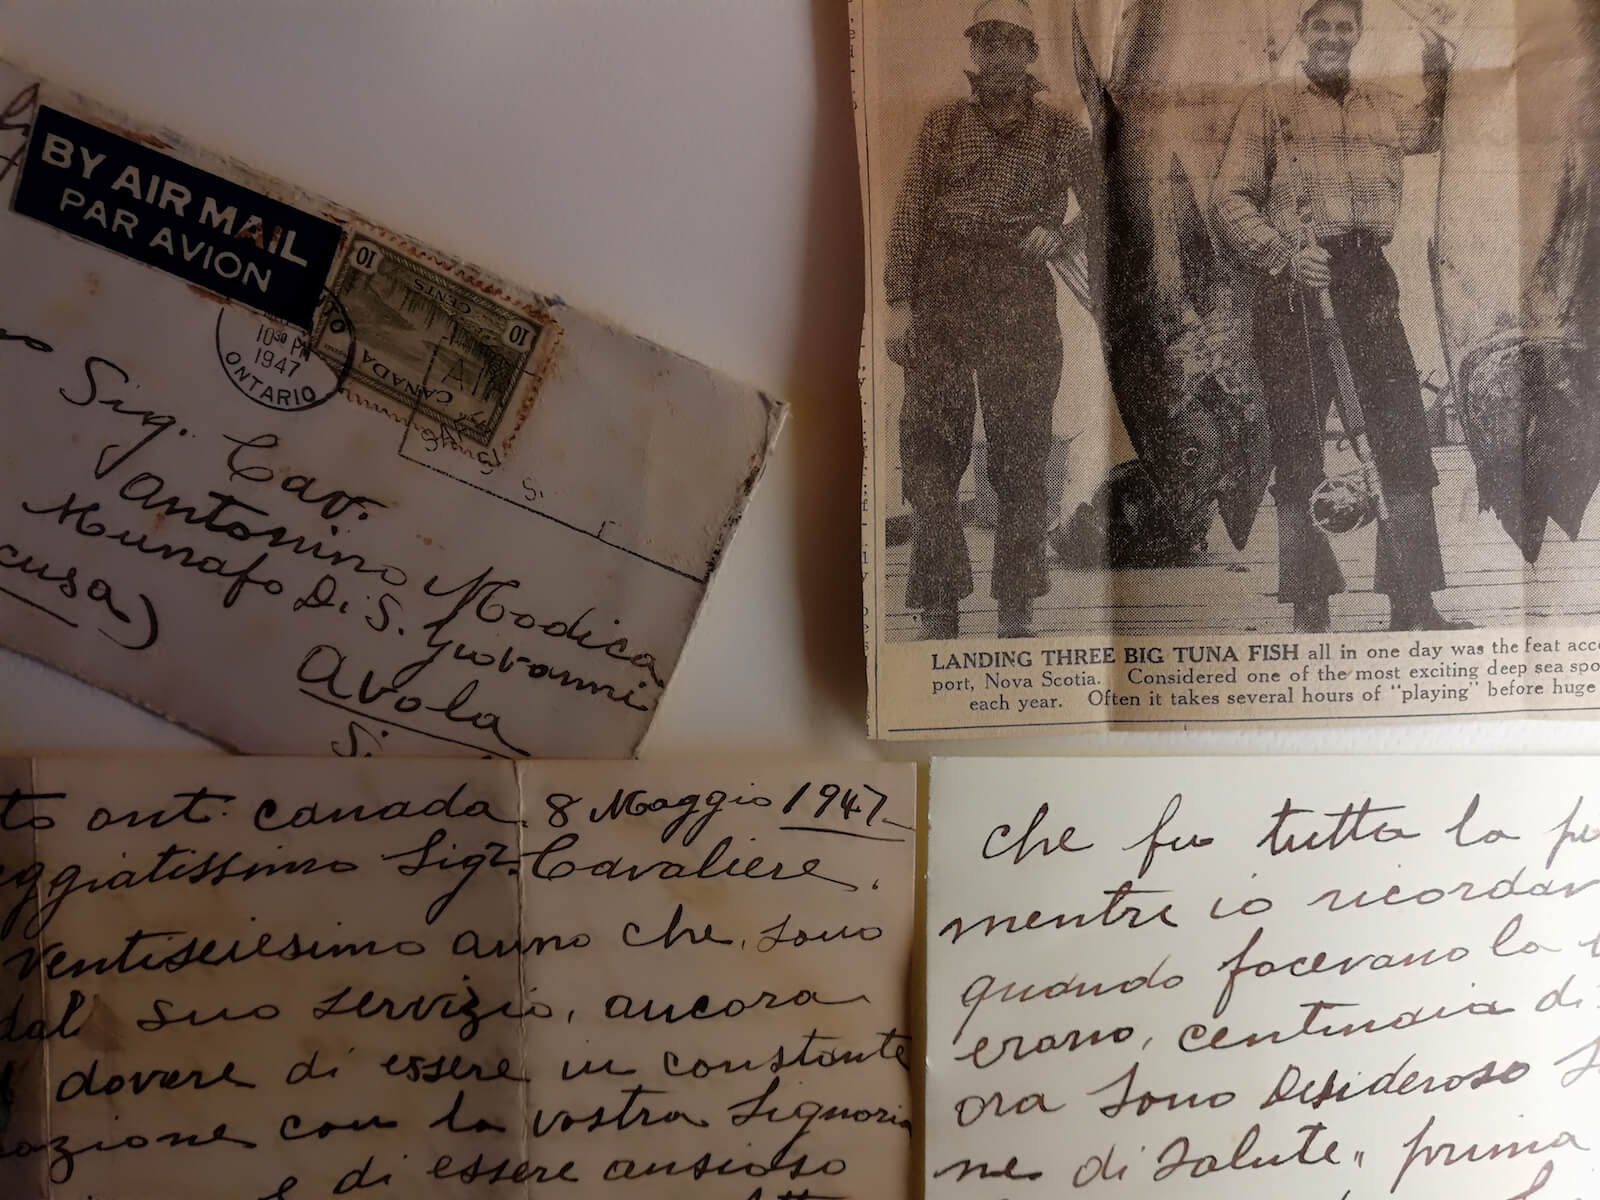 BY AIR MAIL
PAR AVION
10
10
CENTS
CANADA
10³⁰ PM
1947
ONTARIO
Sig. Cav.
Antonino Modica
Munafo Di S. Giovanni
Avola
cusa)
LANDING THREE BIG TUNA FISH all in one day was the feat acc
port, Nova Scotia. Considered one of the most exciting deep sea spo
each year. Often it takes several hours of "playing" before huge
to ont. canada 8 Maggio 1947
eggiatissimo Sigr. Cavaliere.
ventiseiesimo anno che, sono
dal suo servizio, ancora
dovere di essere in constante
azione con la vostra Signoria
di essere ansioso
che fu tutta la
mentre io ricordav
quando facevano la
erano, centinaia di
ora sono Desideroso
ne di Salute,, prima